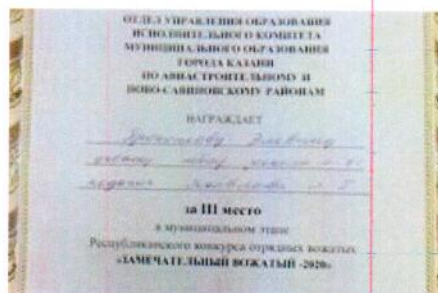 ОТДЕЛ УПРАВЛЕНИЯ ОБРАЗОВАНИЯ
ИСПОЛНИТЕЛЬНОГО КОМИТЕТА
МУНИЦИПАЛЬНОГО ОБРАЗОВАНИЯ
ГОРОДА КАЗАНИ
ПО АВИАСТРОИТЕЛЬНОМУ И
НОВО-САВИНОВСКОМУ РАЙОНАМ
НАГРАЖДАЕТ
за III место
в муниципальном этапе
Республиканского конкурса отрядных вожатых
«ЗАМЕЧАТЕЛЬНЫЙ ВОЖАТЫЙ -2020»